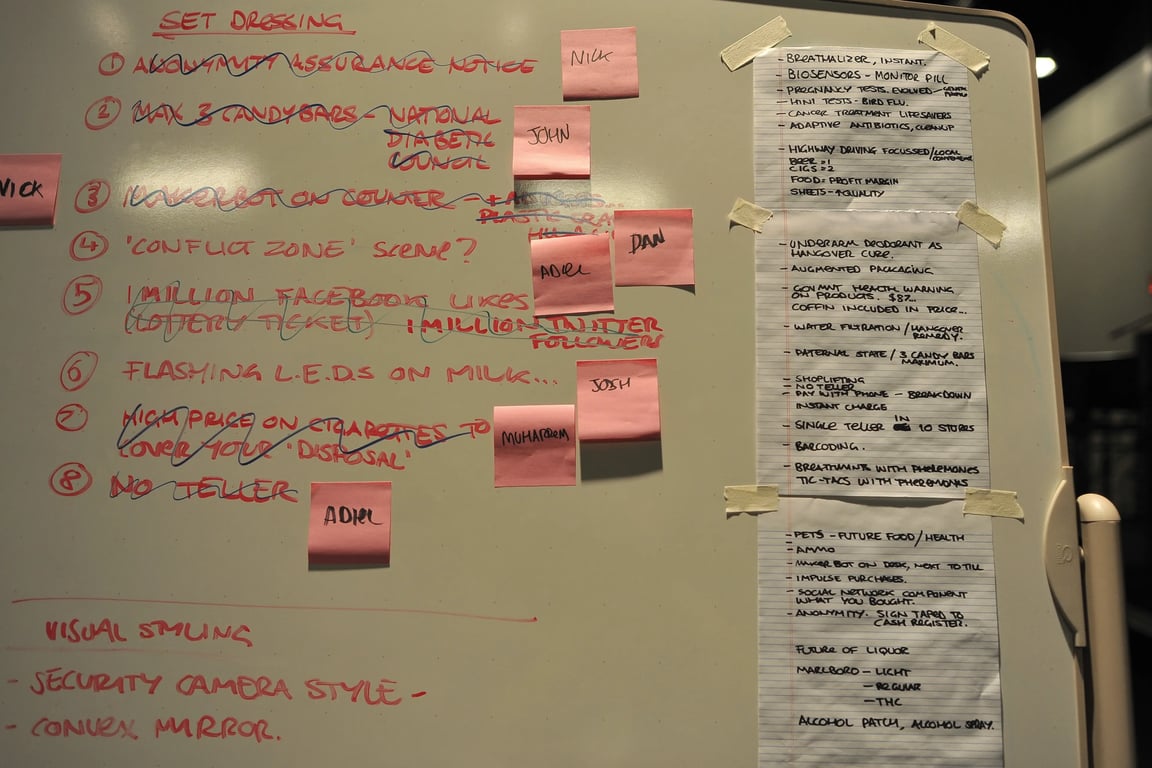 SET DRESSING
① ANONYMITY ASSURANCE NOTICE
NICK
② MAX 3 CANDYBARS - NATIONAL
DIABETIC
COUNCIL
JOHN
NICK
③ MAKERBOT ON COUNTER -
PLASTIC
④ 'CONFLICT ZONE' SCENE?
ADIEL
DAN
⑤ 1 MILLION FACEBOOK LIKES
(LOTTERY TICKET) 1 MILLION TWITTER
FOLLOWERS
⑥ FLASHING L.E.D.S ON MILK...
JOSH
⑦ HIGH PRICE ON CIGARETTES TO
COVER YOUR 'DISPOSAL'
MUHARREM
⑧ NO TELLER
ADIEL
VISUAL STYLING
- SECURITY CAMERA STYLE -
- CONVEX MIRROR.
- BREATHALIZER, INSTANT.
- BIOSENSORS - MONITOR PILL
- PREGNANCY TESTS. EVOLVED -
- H1N1 TESTS - BIRD FLU.
- CANCER TREATMENT LIFESAVERS
- ADAPTIVE ANTIBIOTICS, CLEANUP
- HIGHWAY DRIVING FOCUSSED/LOCAL
BEER = 1
CIGS = 2
FOOD = PROFIT MARGIN
SHEETS - QUALITY
- UNDERARM DEODORANT AS
HANGOVER CURE.
- AUGMENTED PACKAGING
- GOVMNT HEALTH WARNING
ON PRODUCTS. $87...
COFFIN INCLUDED IN PRICE...
- WATER FILTRATION / HANGOVER
REMEDY.
- PATERNAL STATE / 3 CANDY BARS
MAXIMUM.
- SHOPLIFTING
- NO TELLER
- PAY WITH PHONE - BREAKDOWN
INSTANT CHARGE
- SINGLE TELLER IN 10 STORES
- BARCODING.
- BREATHMINTS WITH PHEREMONES
TIC-TACS WITH PHEREMONES
- PETS - FUTURE FOOD/HEALTH
- AMMO
- MAKER BOT ON DESK, NEXT TO TILL
- IMPULSE PURCHASES.
- SOCIAL NETWORK COMPONENT
WHAT YOU BOUGHT.
- ANONYMITY. SIGN TAPED TO
CASH REGISTER.
FUTURE OF LIQUOR
MARLBORO - LIGHT
- REGULAR
- THC
ALCOHOL PATCH, ALCOHOL SPRAY.